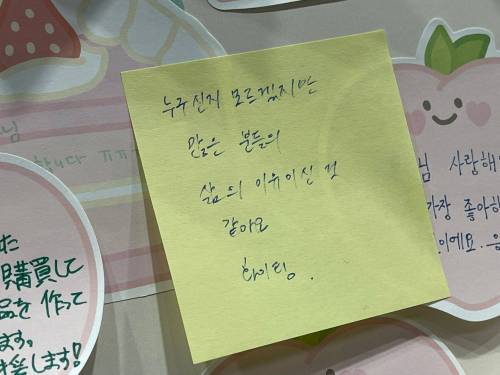 누구신지 모르겠지만
많은 분들의
삶의 이유이신 것
같아요
화이팅.
님
합니다 끄끄
購買して
品を作って
ます。
援します!
님 사랑해
가장 좋아하
이에요.